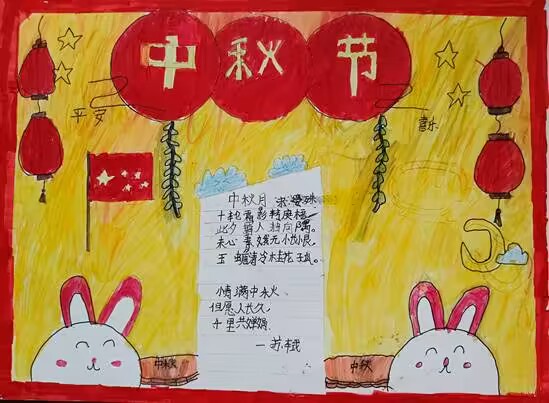 中秋节
平安
喜乐
中秋月 晏殊
十轮霜影转庭梧
此夕羁人独向隅。
未必素娥无怅恨，
玉蟾清冷桂花孤。
情满中秋
但愿人长久，
千里共婵娟
—苏轼
中秋
中秋